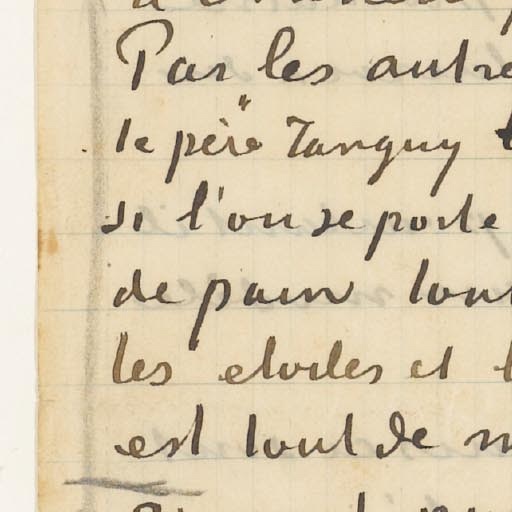 Par les autre
le père" Tanguy
si l'on se porte
de pain tout
les etoiles et l
est tout de m